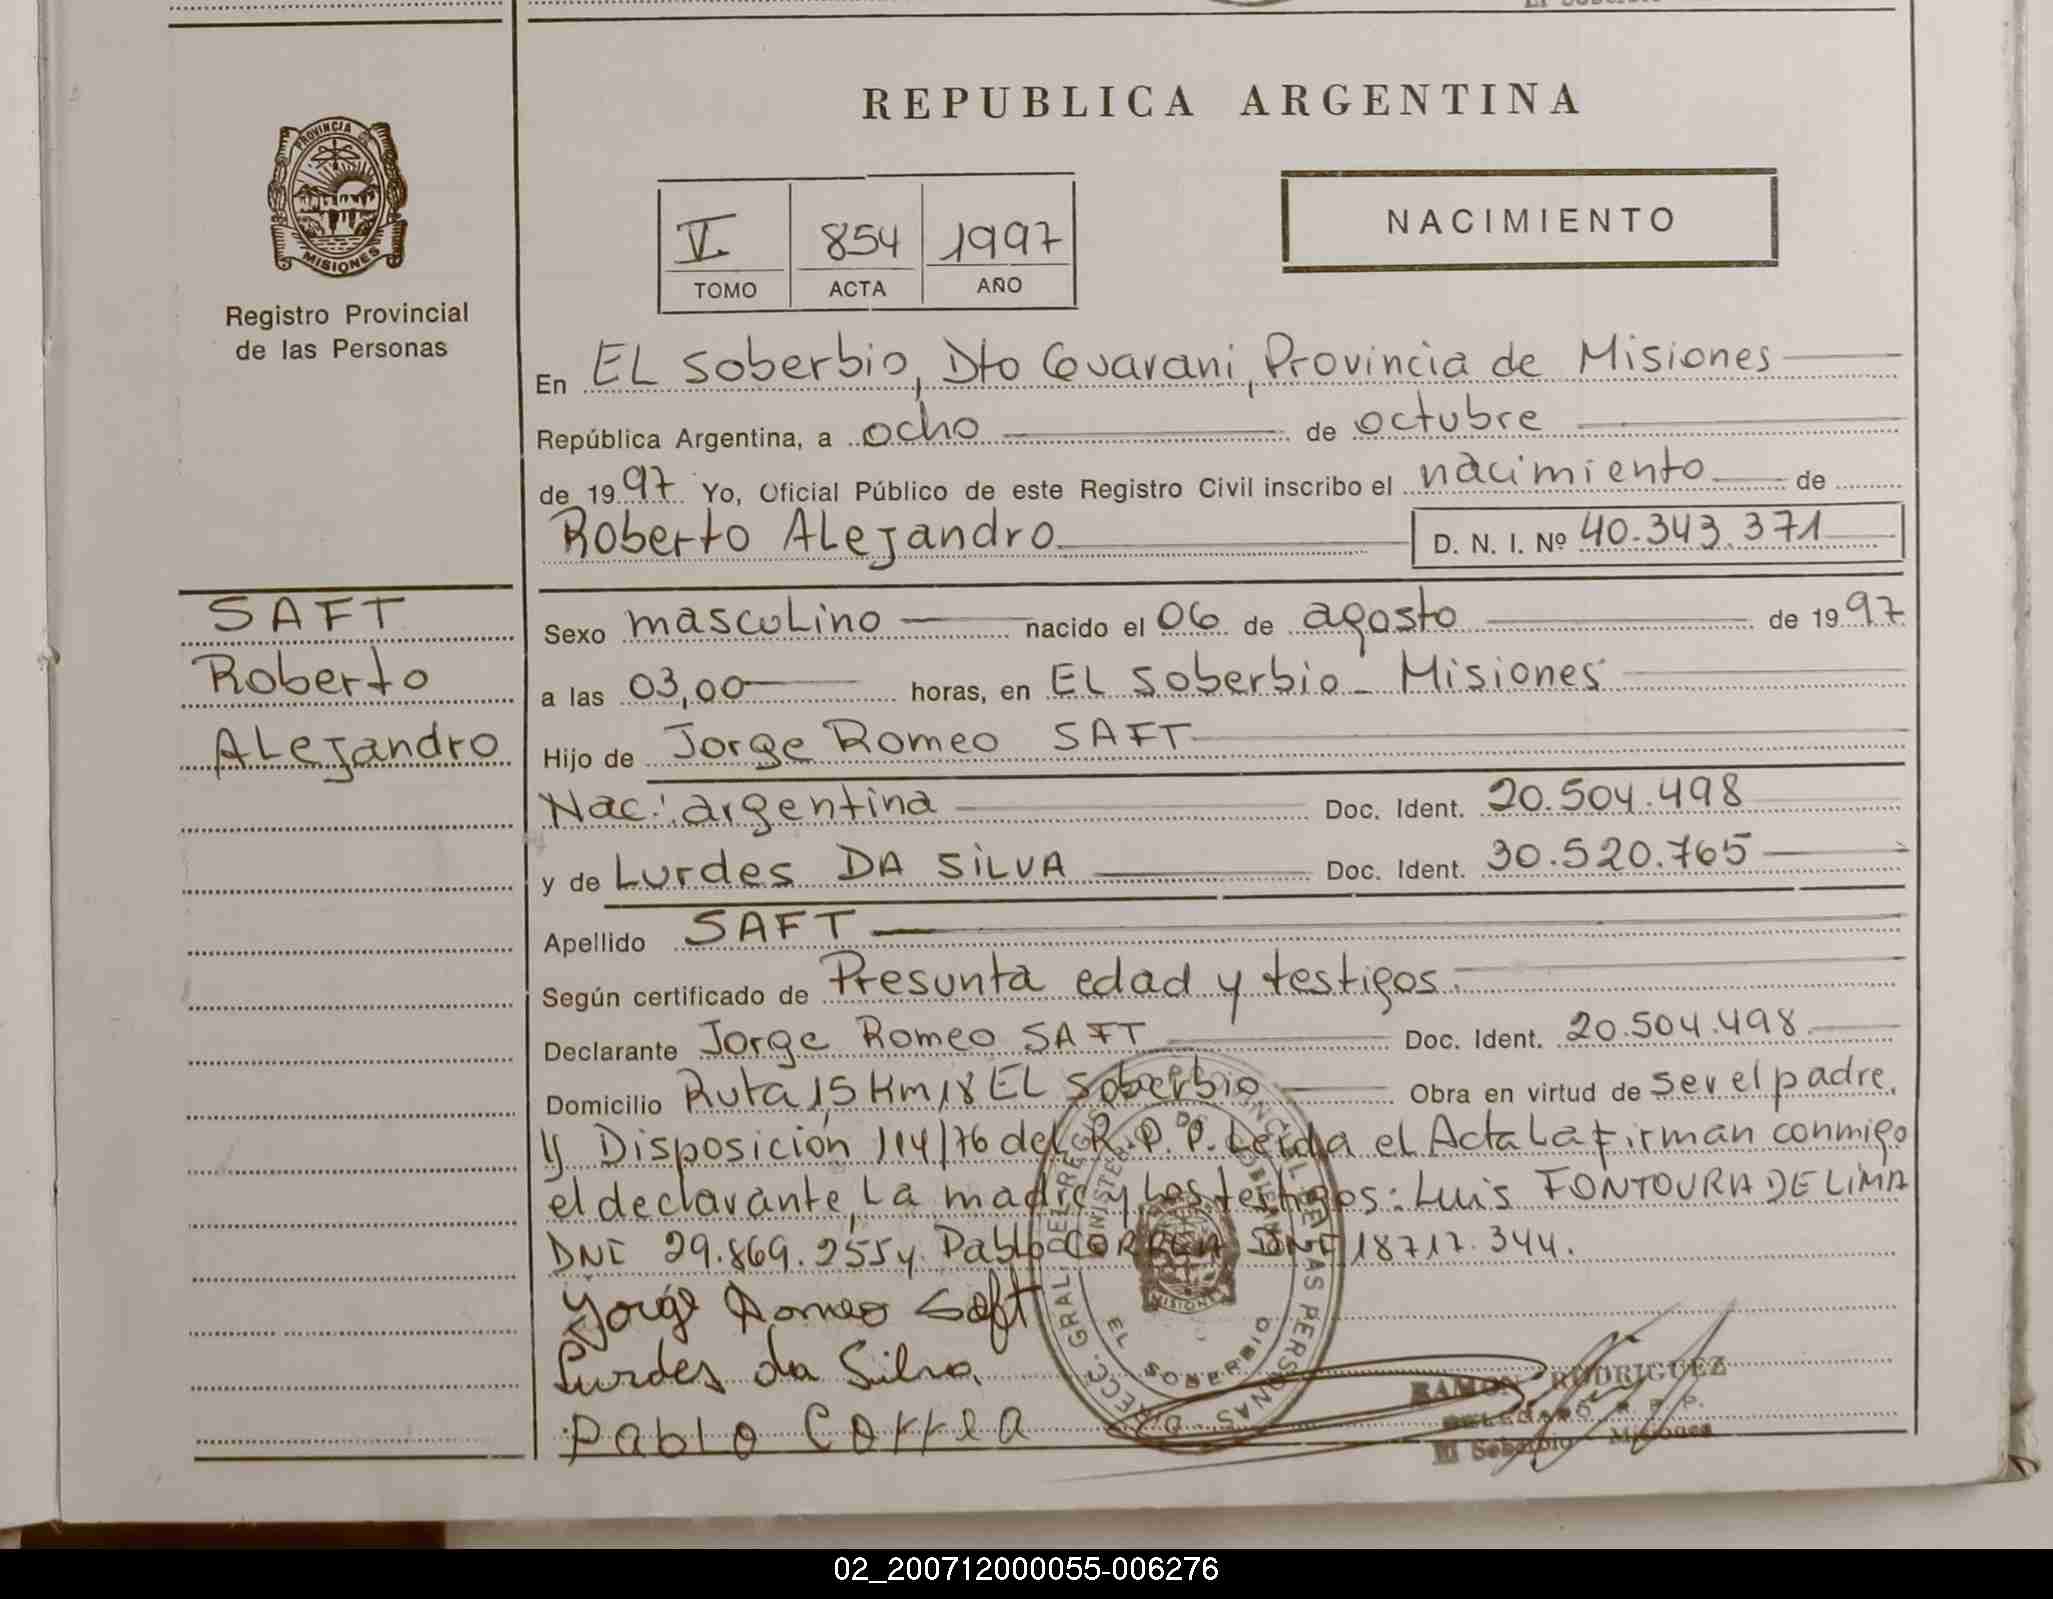 REPUBLICA ARGENTINA
PROVINCIA DE MISIONES
Registro Provincial
de las Personas
V 854 1997
TOMO ACTA AÑO
NACIMIENTO
En EL Soberbio, Dto Guarani, Provincia de Misiones
República Argentina, a ocho de octubre
de 1997 Yo, Oficial Público de este Registro Civil inscribo el nacimiento de
Roberto ALejandro D. N. I. Nº 40.343.371
SAFT
Roberto
ALejandro
Sexo mascuLino nacido el 06 de agosto de 1997
a las 03,00 horas, en EL Soberbio - Misiones
Hijo de Jorge Romeo SAFT
Nac: argentina Doc. Ident. 20.504.498
y de Lurdes DA SiLVA Doc. Ident. 30.520.765
Apellido SAFT
Según certificado de Presunta edad y testigos.
Declarante Jorge Romeo SAFT Doc. Ident. 20.504.498
Domicilio Ruta 15 Km 18 EL Soberbio Obra en virtud de ser el padre.
y Disposición 114/76 del R.P.P. Leida el Acta La firman conmigo
el declarante, La madre y Los testigos: Luis FONTOURA DE LiMA
DNI 29.869.255 y Pablo CORREA DNI 18717.344.
Jorge Romeo Saft
Lurdes da Silva
Pablo Correa
DIRECC. GRAL. DEL REGIS PROVINCIAL DE LAS PERSONAS
MINISTERIO DE GOBIERNO
MISIONES
EL SOBERBIO
RAMON RODRIGUEZ
DELEGADO R. P. P.
El Soberbio - Misiones
02_200712000055-006276